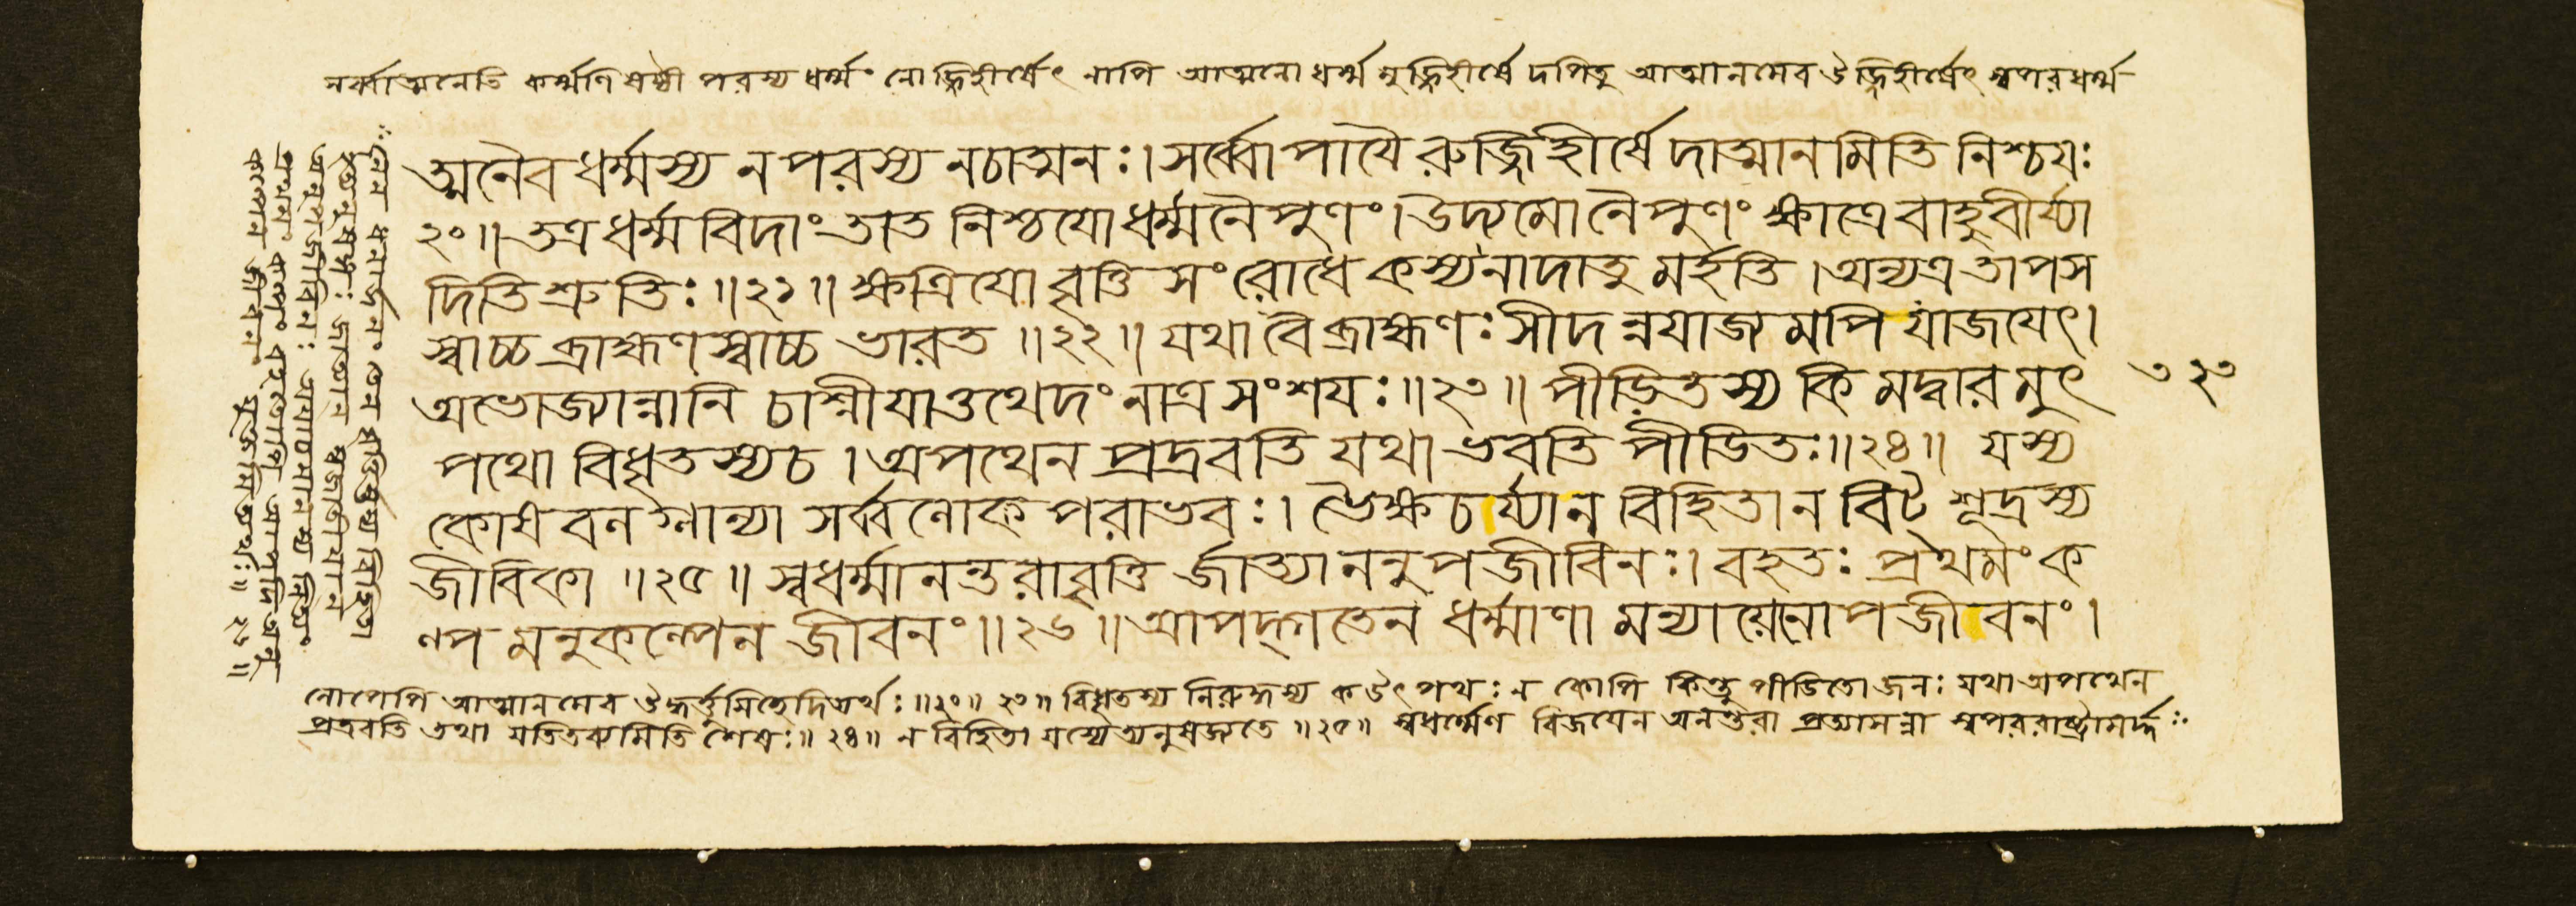 নর্ব্বাত্মনেতি কর্ম্মণি ষষ্ঠী পরস্য ধর্ম্মং নোজ্জিহীর্ষেৎ নাপি আত্মনো ধর্ম্ম মুজ্জিহীর্ষে দপিতু আত্মানমেব উজ্জিহীর্ষেৎ স্বপরধর্ম্ম
ত্মনৈব ধর্ম্মস্য ন পরস্য নচাত্মনঃ। সর্ব্বোপাযৈ রুজ্জিহীর্ষে দাত্মানমিতি নিশ্চযঃ
২০॥ তত্র ধর্ম্মবিদাং তাত নিশ্চযো ধর্ম্মনৈপুণং। উদ্যমো নৈপুণং ক্ষাত্রে বাহুবীর্য্যা
দিতি শ্রুতিঃ॥২১॥ ক্ষত্রিযো বৃত্তি সংরোধে কস্য নাদাতু মর্হতি। অন্যত্র তাপস
স্বাচ্চ ব্রাহ্মণস্বাচ্চ ভারত॥২২॥ যথা বৈ ব্রাহ্মণঃ সীদন্নযাজ্য মপি যাজযেৎ।
অভোজ্যান্নানি চাশ্নীযাত্তথেদং নাত্র সংশযঃ॥২৩॥ পীড়িতস্য কিমদ্বারমুৎ
৩২৩
পথো বিধৃতস্য চ। অপথেন প্রদ্রবতি যথা ভবতি পীডিতঃ॥২৪॥ যস্য
কোষবলগ্লান্যা সর্ব্বলোক পরাভবঃ। ভৈক্ষচর্য্যা ন বিহিতা ন বিট শূদ্রস্য
জীবিকা॥২৫॥ স্বধর্ম্মানন্তরা বৃত্তি র্জাত্যাননুপজীবিনঃ। বহতঃ প্রথমং ক
ল্প মনুকল্পেন জীবনং॥২৬॥ আপদ্গতেন ধর্ম্মাণা মন্যাযেনোপজীবনং।
লোপেপি আত্মানমেব উদ্ধর্ত্তুমিচ্ছেদিত্যর্থঃ॥২০॥ ২৩॥ বিধৃতস্য নিরুদ্ধস্য ক উৎপথঃ ন কোপি কিন্তু পীডিতো জনঃ যথা অপথেন
প্রদ্রবতি তথা মতিতব্যমিতি শেষঃ॥২৪॥ ন বিহিতা যস্যেত্যনুষজ্যতে॥২৫॥ স্বধর্ম্মেণ বিজযেন অনন্তরা প্রত্যাসন্না স্বপররাষ্ট্রামর্দ্দ